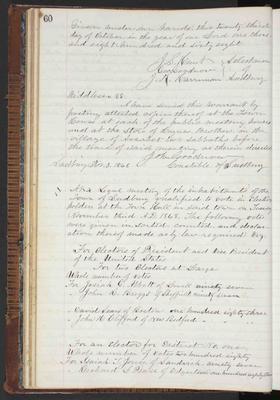 60
Given under our hands this twenty third
day of October in the year of our Lord one thous
and eight hundred and sixty eight
J. S. Hunt Selectmen
of
J. K. Harriman Sudbury
Middlesex SS.
I have served this warrant by
posting attested copies thereof at the Town
House, at each of the public meeting houses
and at the Store of Brothers in the
village of two Sabbaths before
the time of said meeting as therein directed
John Goodnow
Sudbury Nov. 3. 1868 Constable of Sudbury
At a Legal meeting of the inhabitants of the
Town of Sudbury qualified to vote in Election
holden at the Town Hall in said town on Tuesday
November third A.D. 1868. The following votes
were given in sorted counted and declar
ation thereof made as by law required Viz.
For Electors of President and Vice President
of the United States
For two Electors at Large
Whole number of votes
For Josiah G. Abbott of Lowell ninety seven
John R. Briggs of Sheffield ninety seven
David Sears of Boston one hundred eighty three
John H. Clifford of New Bedford
For an elector for District No. one
Whole number of votes two hundred eighty
For of Sandwich ninety seven
Richard L. Pease of Edgartown one hundred eighty three